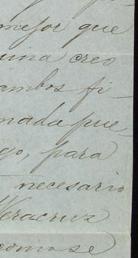 mejor que
una creo
ambos fi-
nada pue-
go, para
necesario
Veracruz
como se